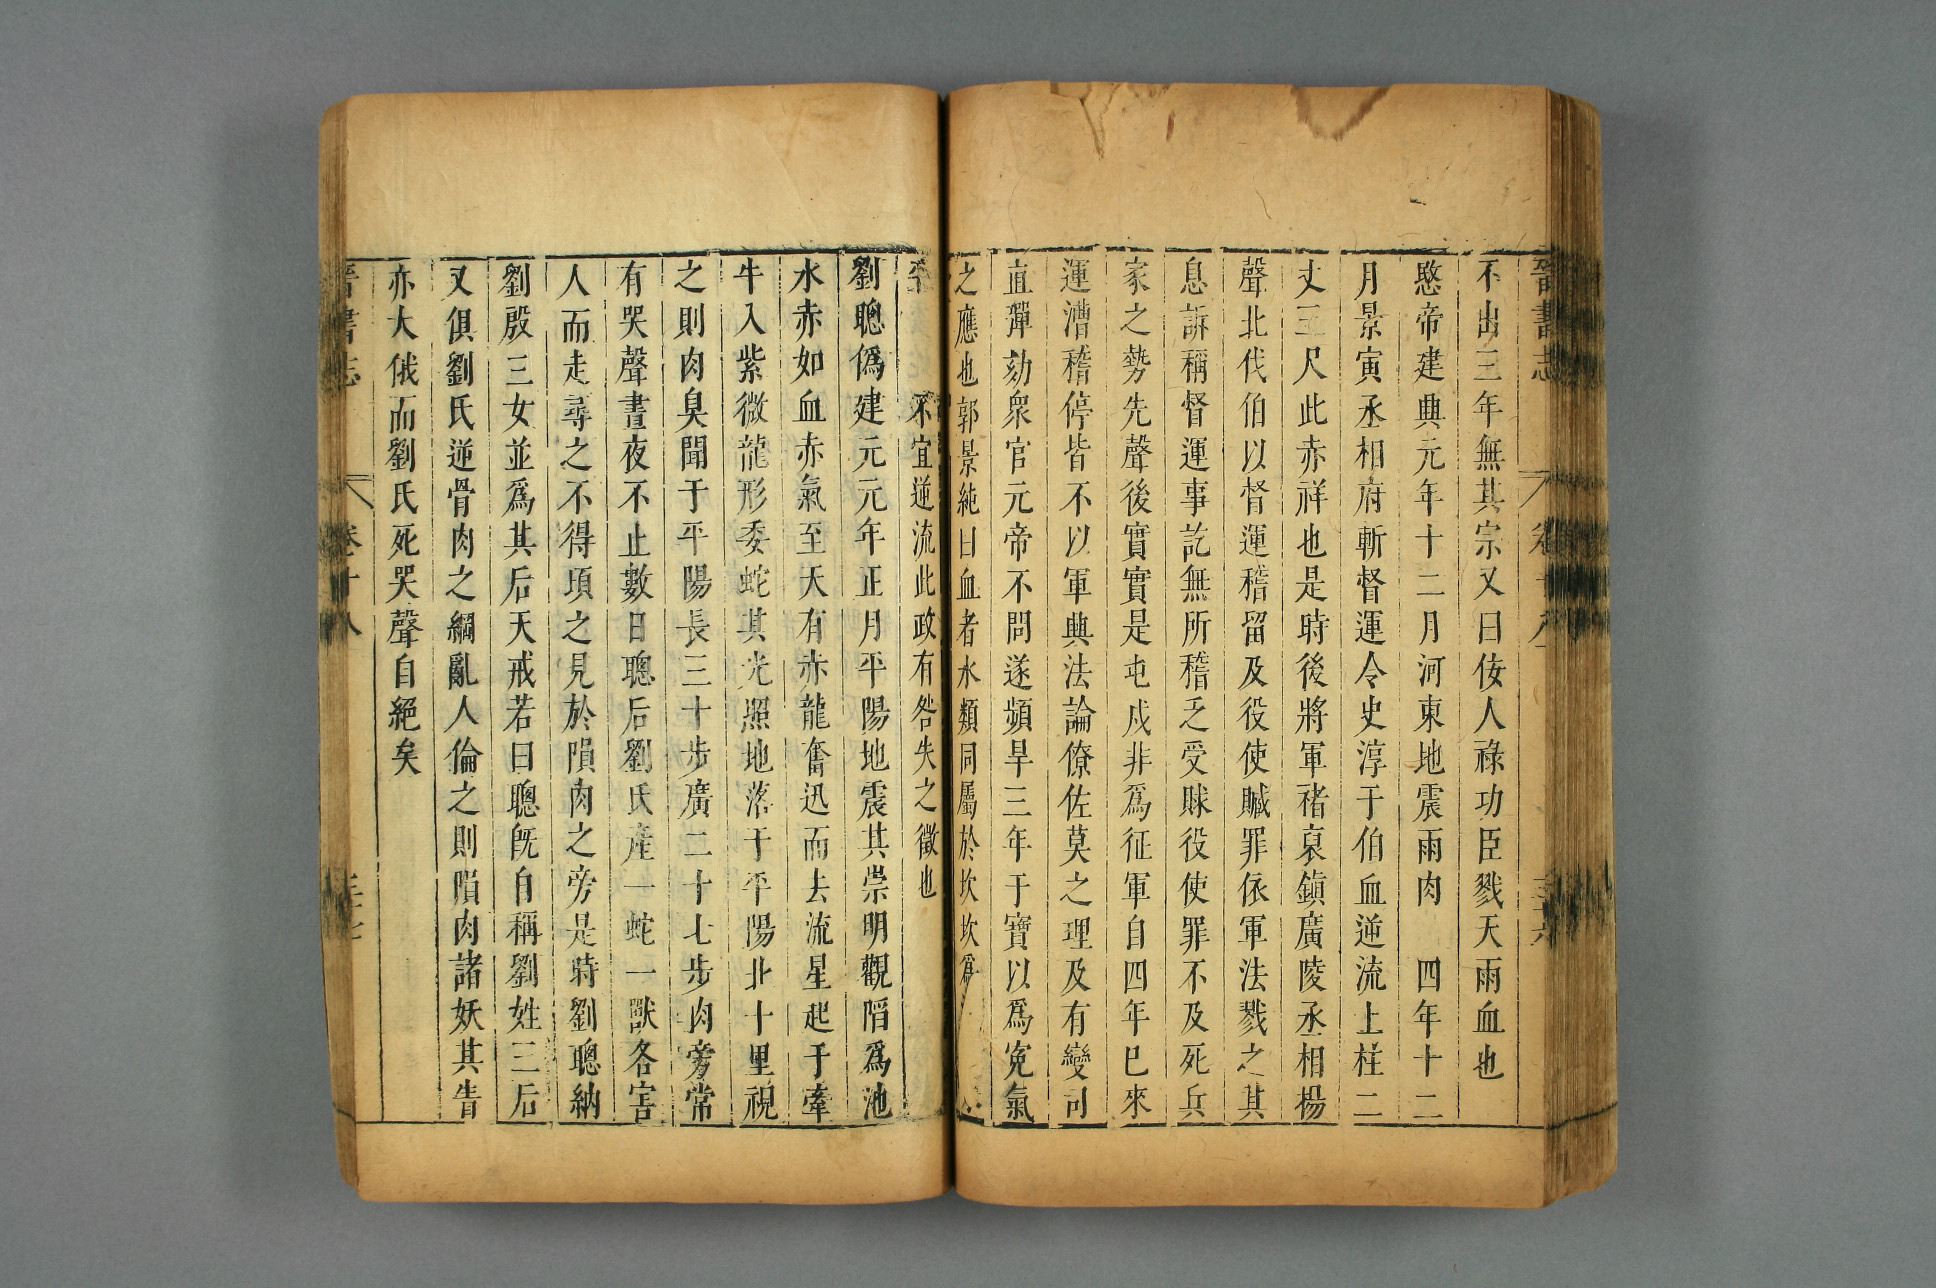 晉書志 卷十八 三十六
不出三年無其宗又曰佞人祿功臣戮天雨血也
愍帝建興元年十二月河東地震雨肉 四年十二
月景寅丞相府斬督運令史淳于伯血逆流上柱二
丈三尺此赤祥也是時後將軍褚裒鎮廣陵丞相楊
聲北伐伯以督運稽留及役使贓罪依軍法戮之其
息訴稱督運事訖無所稽乏受賕役使罪不及死兵
家之勢先聲後實實是屯戍非爲征軍自四年已來
運漕稽停皆不以軍興法論僚佐莫之理及有變司
直彈劾衆官元帝不問遂頻旱三年干寶以爲寃氣
之應也郭景純曰血者水類同屬於坎坎爲
平 不宜逆流此政有咎失之徵也
劉聰僞建元元年正月平陽地震其崇明觀陷爲池
水赤如血赤氣至天有赤龍奮迅而去流星起于牽
牛入紫微龍形委蛇其光照地落于平陽北十里視
之則肉臭聞于平陽長三十步廣二十七步肉旁常
有哭聲晝夜不止數日聰后劉氏產一蛇一獸各害
人而走尋之不得頃之見於隕肉之旁是時劉聰納
劉殷三女並爲其后天戒若曰聰既自稱劉姓三后
又俱劉氏逆骨肉之綱亂人倫之則隕肉諸妖其眚
亦大俄而劉氏死哭聲自絕矣
晉書志 卷十八 三十七